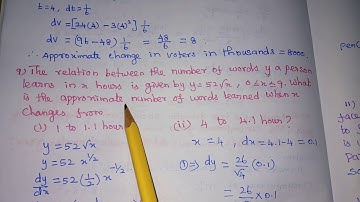 t=4, dt=1/6
dv = [24(4) - 3(4)²] 1/6
dv = (96-48) 1/6 = 48/6 = 8
∴ Approximate change in voters in thousands = 8000
9) The relation between the number of words y a person
learns in x hours is given by y=52√x, 0≤x≤9. What
is the approximate number of words learned when x
changes from
(i) 1 to 1.1 hour
y = 52√x
y = 52 x^1/2
dy/dx = 52 (1/2) x^-1/2
(ii) 4 to 4.1 hour?
x = 4, dx = 4.1-4 = 0.1
①⇒ dy = 26/√4 (0.1)
= 26/2 × 0.1
pen
(ii)
face
is
x